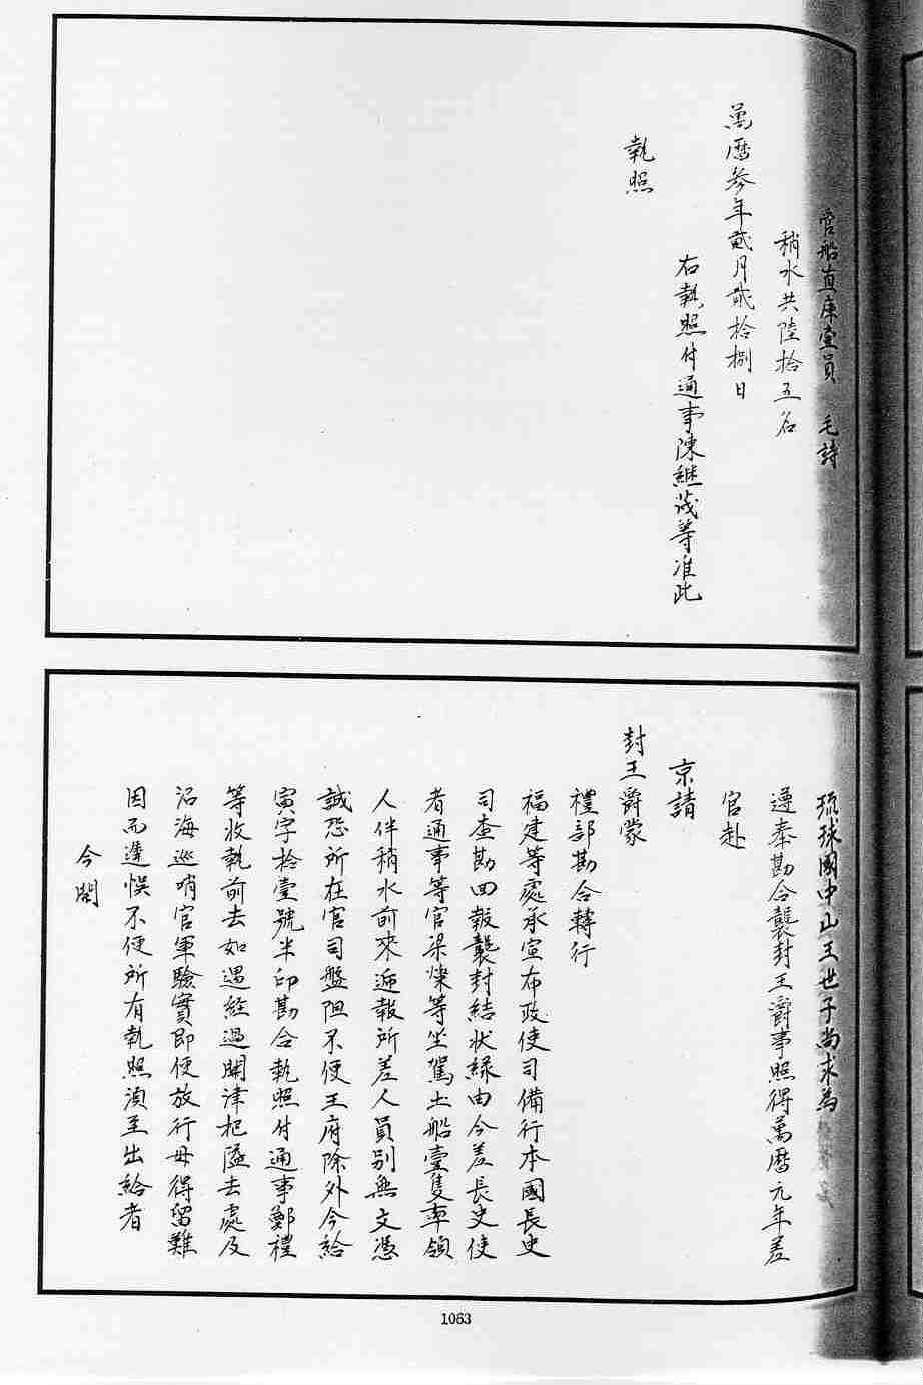 管船直庫壹員 毛詩
稍水共陸拾五名
萬曆參年貳月貳拾捌日
右執照付通事陳繼茂等准此
執照
琉球國中山王世子尚永為
遵奉勘合襲封王爵事照得萬曆元年差
官赴
京請
封王爵蒙
禮部勘合轉行
福建等處承宣布政使司備行本國長史
司查勘回報襲封結狀緣由今差長史使
者通事等官梁燦等坐駕土船壹隻率領
人伴稍水前來逓報所差人員別無文憑
誠恐所在官司盤阻不便王府除外今給
寅字拾壹號半印勘合執照付通事鄭禮
等收執前去如遇經過關津把隘去處及
沿海巡哨官軍驗實即便放行毋得留難
因而違悞不便所有執照須至出給者
今開
1063